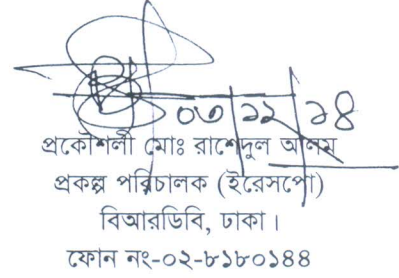 ০৩/১২/১৪
প্রকৌশলী মোঃ রাশেদুল আলম
প্রকল্প পরিচালক (ইরেসপো)
বিআরডিবি, ঢাকা।
ফোন নং-০২-৮১৮০১৪৪